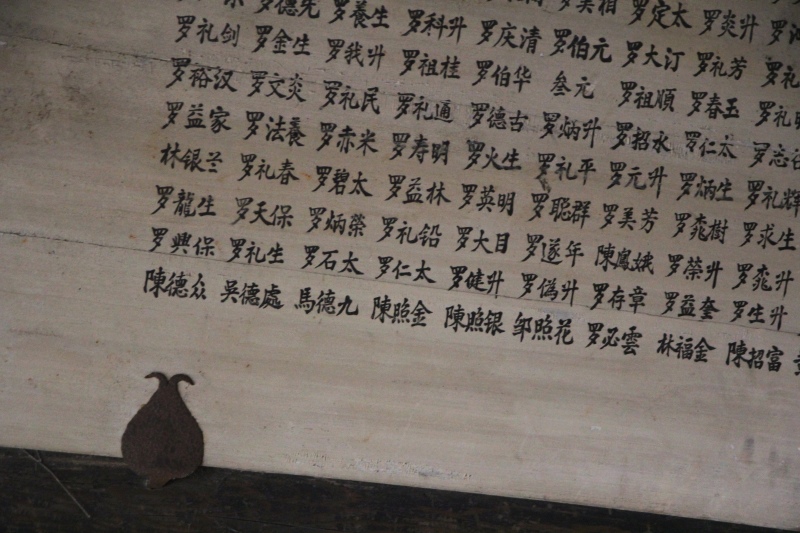 罗德先 罗養生 罗科升 罗定太 罗炎升
罗礼剑 罗金生 罗我升 罗祖桂 罗庆清 罗伯元 罗大汀 罗礼芳
罗裕汉 罗文炎 罗礼民 罗礼通 罗伯华 叁元 罗祖順 罗春玉
罗益家 罗法養 罗赤米 罗寿明 罗德古 罗炳升 罗招水 罗仁太
林银兰 罗礼春 罗碧太 罗益林 罗火生 罗礼平 罗元升 罗炳生 罗礼輝
罗龍生 罗天保 罗炳榮 罗礼铅 罗英明 罗聪群 罗美芳 罗桃樹 罗求生
罗興保 罗礼生 罗石太 罗仁太 罗大目 罗遂年 陳鳳娥 罗荣升 罗桃升
陳德众 吴德處 馬德九 陳照金 罗健升 罗偽升 罗存章 罗益奎 罗生升
陳照银 邹照花 罗必雲 林福金 陳招富